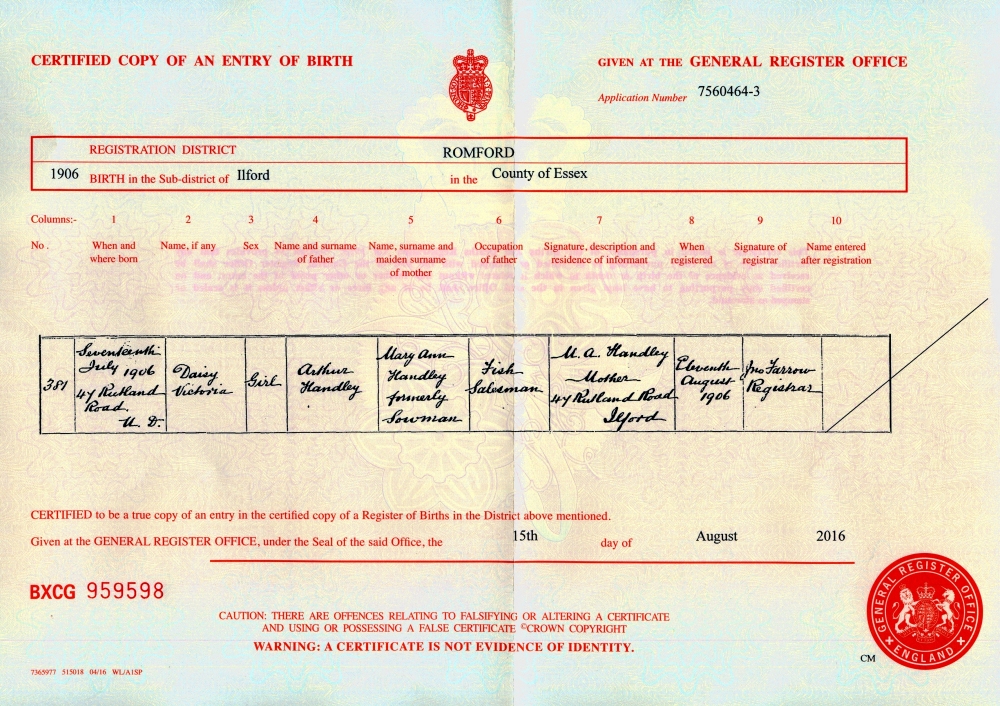 CERTIFIED COPY OF AN ENTRY OF BIRTH
GIVEN AT THE GENERAL REGISTER OFFICE
Application Number 7560464-3
REGISTRATION DISTRICT ROMFORD
1906 BIRTH in the Sub-district of Ilford in the County of Essex
Columns:- 1 2 3 4 5 6 7 8 9 10
No. When and where born
Name, if any
Sex
Name and surname of father
Name, surname and maiden surname of mother
Occupation of father
Signature, description and residence of informant
When registered
Signature of registrar
Name entered after registration
381
Seventeenth
July 1906
47 Rutland
Road
U. D.
Daisy
Victoria
Girl
Arthur
Handley
Mary Ann
Handley
formerly
Sowman
Fish
Salesman
M. A. Handley
Mother
47 Rutland Road
Ilford
Eleventh
August
1906
Jno Farrow
Registrar
CERTIFIED to be a true copy of an entry in the certified copy of a Register of Births in the District above mentioned.
Given at the GENERAL REGISTER OFFICE, under the Seal of the said Office, the 15th day of August 2016
BXCG 959598
CAUTION: THERE ARE OFFENCES RELATING TO FALSIFYING OR ALTERING A CERTIFICATE
AND USING OR POSSESSING A FALSE CERTIFICATE ©CROWN COPYRIGHT
WARNING: A CERTIFICATE IS NOT EVIDENCE OF IDENTITY.
GENERAL REGISTER OFFICE
ENGLAND
CM
7365977 515018 04/16 WL/A1SP